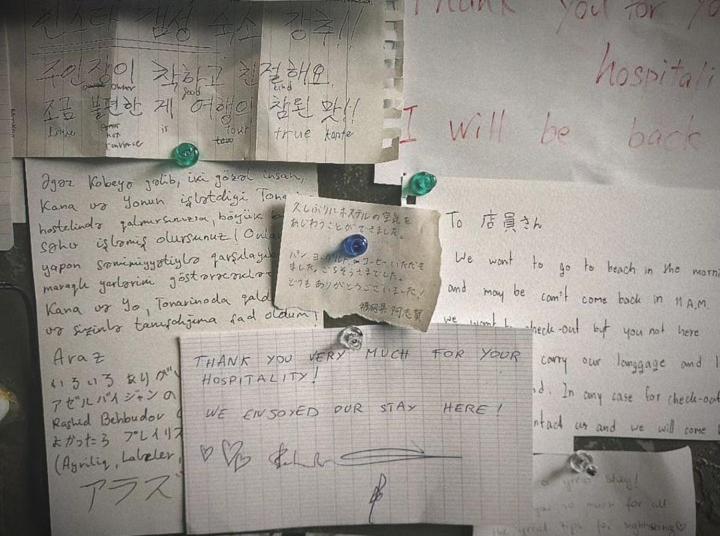 인스타 갬성 숙소 강추!!
주인장이 착하고 친절해요.
owner good kind
조금 불편한 제 여행의 참된 맛!!
is tour true
Thank you for yo
hospitali
I will be back
Əgər Kobeyə gəlib, iki gözəl insan,
Kana və Yonun işlətdiyi Tona
hostelində qalmursunuzsa, böyük
səhv işləmiş olursunuz! Onla
yapon səmimiyyətiylə qarşılayı
maraqlı yerlərini göstərəcəklə
Kana və Yo, Tonarinoda qald
və sizinlə tanışlığıma şad oldum!
Araz
いろいろありが
アゼルバイジャンの
Rashid Behbudov
よかったら プレイリス
(Ayrılıq, Laleler,
アラズ
久しぶりにホステルの空気を
あじわうことができました。
パン ヨーグルト コーヒーいただき
ました。ごちそうさまでした。
とてもありがとうございました!
THANK YOU VERY MUCH FOR YOUR
HOSPITALITY!
WE ENJOYED OUR STAY HERE!
To 店員さん
We want to go to beach in the morni
and may be can't come back in 11 A.M.
we want to check-out but you not here
carry our langgage and
nd. In any case for check-out
ntact us and we will come
great stay!
so much for all
the great tips for sightseeing♡